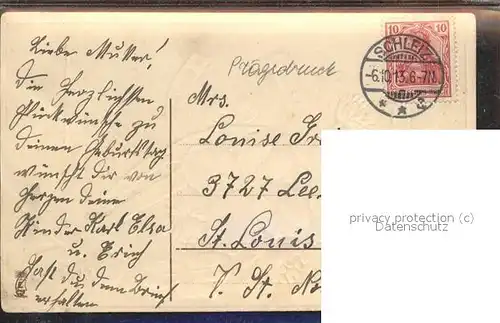 Liebe Mutter!
die herzlichsten
Glückwünsche zu
deinen Geburtstag
wünscht dir von
Herzen deine
Kinder Karl Elsa
u. Erich
Hast du den Brief
erhalten
Prägedruck
10 10
SCHLEIZ
-6.10.13.6-7N.
* * c
Mrs.
Louise
3727 Lee
St. Louis
privacy protection (c)
Datenschutz